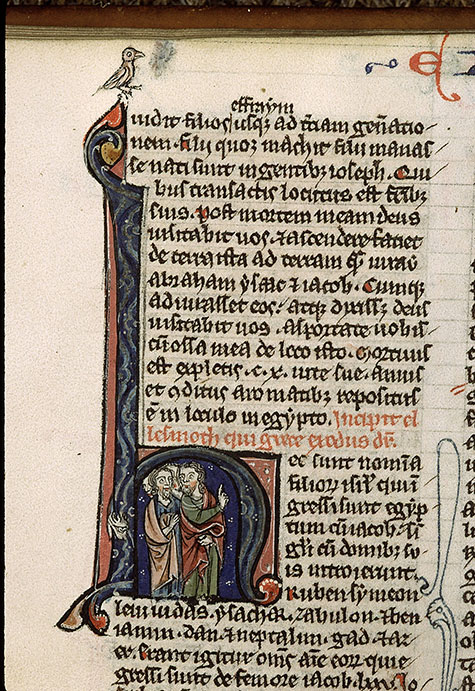 effraym
uidit filios usq; ad t̄ciam gen̄atio/
nem. filii quoq; machir filii manas/
se nati sunt in genibꝫ ioseph. Qui/
bus transactis locutus est fr̄ibꝫ
suis. post mortem meam deus
uisitabit uos. & ascendere faciet
de terra ista ad terram quā iurauit
abraham ysaac & iacob. Cumq;
adiurasset eos. atq; dixissꝫ deus
uisitabit uos. asportate uobis/
cū ossa mea de loco isto. Mortuus
est expletis .c.x. uite sue. annis
et ꝯditus aromatibꝫ repositus
ē in loculo in egypto. Incipit el
lesmoth qui grece exodus dr̄.
Hec sunt nomīa
filioꝝ isr̄l qui ī
gressi sunt egyp
tum cū iacob. sī
gl̄i cū domibꝫ su
is introierunt.
Ruben symeon
leui iudas. ysachar. zabulon. & ben
iamin. dan. & neptalim. gad. & as
er. Erant igitur om̄s aīe eoꝝ qui e
gressi sunt de femore iacob. lxx. Io